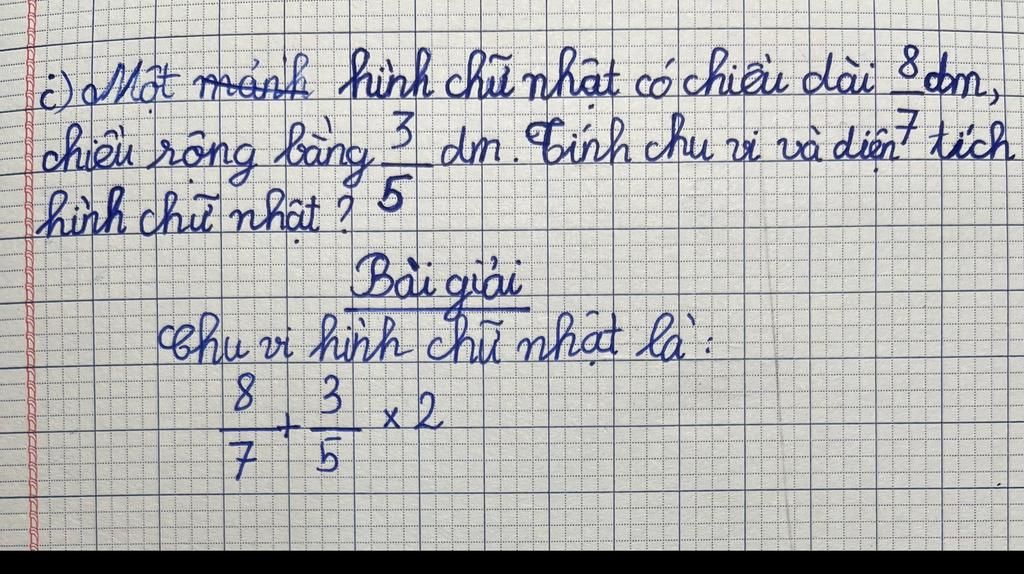 c) Một mảnh hình chữ nhật có chiều dài 8/7 dm,
chiều rộng bằng 3/5 dm. Tính chu vi và diện tích
hình chữ nhật?
Bài giải
Chu vi hình chữ nhật là:
8/7 + 3/5 × 2